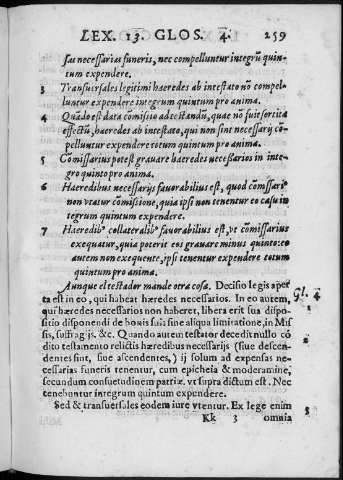 LEX. 13. GLOS. 4. 259
sas necessarias funeris, nec compelluntur integrũ quin-
tum expendere.
3 Transuersales legitimi haeredes ab intestato nõ compel-
luntur expendere integrum quintum pro anima.
4 Quãdo est data cõmisio ad testandũ, quae nõ fuit sortita
effectũ, haeredes ab intestato, qui non sint necessarij cõ-
pelluntur expendere totum quintum pro anima.
5 Cõmissarius potest grauare haeredes necessarios in inte-
gro quinto pro anima.
6 Haeredibus necessarijs fauorabilius est, quod cõmssari⁹
non vtatur cõmisione, quia ipsi non tenentur eo casu in
tegrum quintum expendere.
7 Haeredib⁹ collateralib⁹ fauorabilius est, vt cõmissarius
exequatur, quia poterit eos grauare minus quinto: eo
autem non exequente, ipsi tenentur expendere totum
quintum pro anima.
Aunque el testador mande otra cosa. Decisio legis aper
ta est in eo, qui habeat hæredes necessarios. In eo autem, gl. 4
qui hæredes necessarios non haberet, libera erit sua dispo-
sitio disponendi de bonis suis sine aliquo limitatione, in Mis-
sis, suffragijs, &c. Quando autem testator decedit nullo cõ
dito testamento relictis hæredibus necessarijs (siue descen-
dentes sint, siue ascendentes,) ij solum ad expensas ne-
cessarias funeris tenentur, cum epicheia & moderamine,
secundum consuetudinem patriæ. vt supra dictum est. Nec
tenebuntur integrum quintum expendere.
Sed & transuersales eodem iure vtentur. Ex lege enim 3
Kk 3 omnia